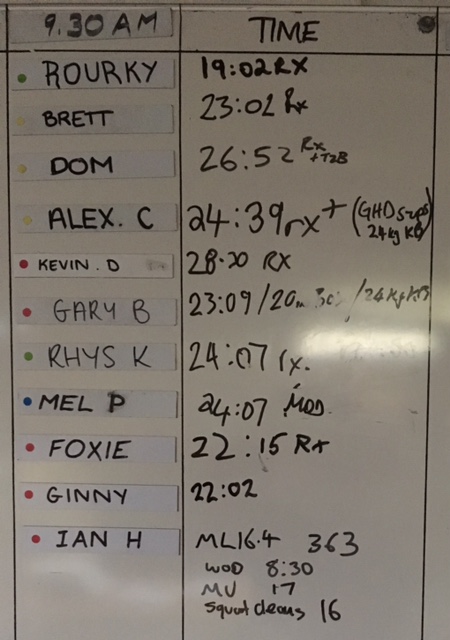 9.30 AM TIME
ROURKY 19:02 RX
BRETT 23:02 Rx
DOM 26:52 Rx +T2B
ALEX. C 24:39 rx + (GHD s-ups)
24kg KB
KEVIN. D 28:20 RX
GARY B 23:09/20m /24kgKB
RHYS K 24:07 rx.
MEL P 24:07 MOD
FOXIE 22:15 Rx
GINNY 22:02
IAN H ML16.4 363
WOD 8:30
MU 17
Squat cleans 16